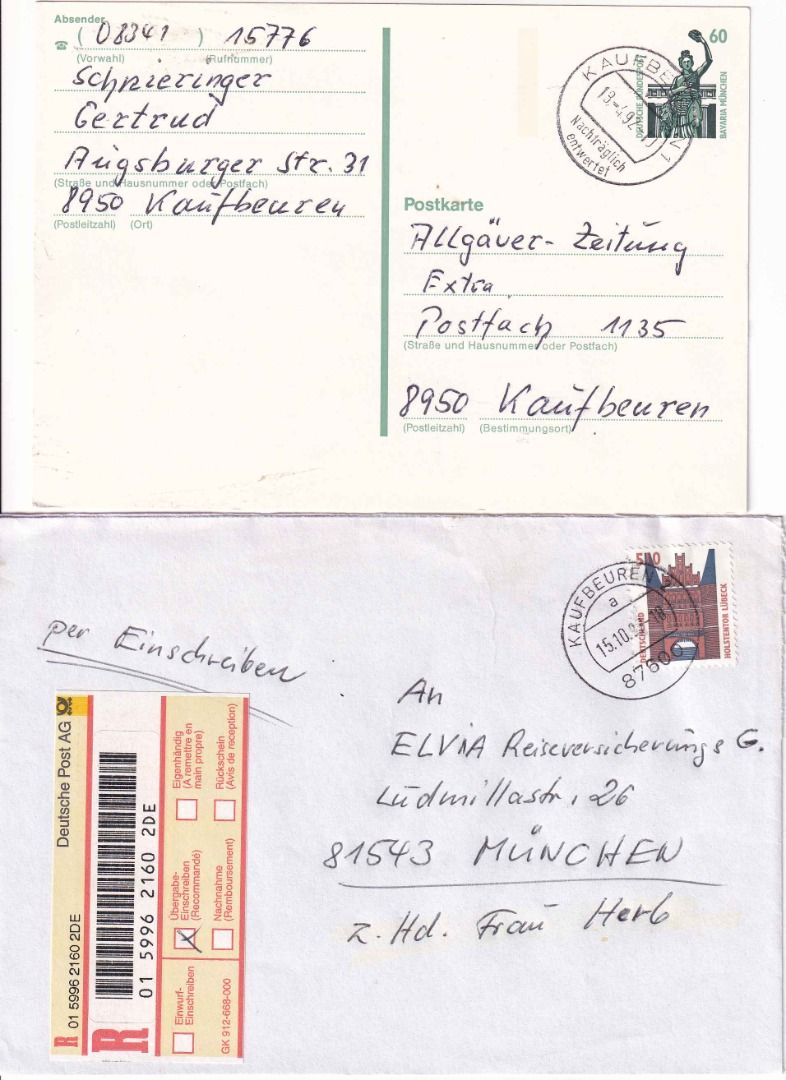 Absender
☎ ( 08341 ) 15776
(Vorwahl) (Rufnummer)
Schpieringer
Gertrud
Augsburger Str. 31
(Straße und Hausnummer oder Postfach)
8950 Kaufbeuren
(Postleitzahl) (Ort)
60
DEUTSCHE BUNDESPOST
BAVARIA MÜNCHEN
KAUFBEUREN 1
13.-4.92
Nachträglich
entwertet
Postkarte
Allgäuer-Zeitung
Extra
Postfach 1135
(Straße und Hausnummer oder Postfach)
8950 Kaufbeuren
(Postleitzahl) (Bestimmungsort)
per Einschreiben
510
DEUTSCHLAND
HOLSTENTOR LÜBECK
KAUFBEUREN 2
a
15.10.
18
87600
An
ELVIA Reiseversicherungs G.
Ludmillastr. 26
81543 MÜNCHEN
z. Hd. Frau Herb
R 01 5996 2160 2DE Deutsche Post AG
R 01 5996 2160 2DE
Einwurf-
Einschreiben
Übergabe-
Einschreiben
(Recommandé)
Eigenhändig
(A remettre en
main propre)
Nachnahme
(Remboursement)
Rückschein
(Avis de reception)
GK 912-668-000